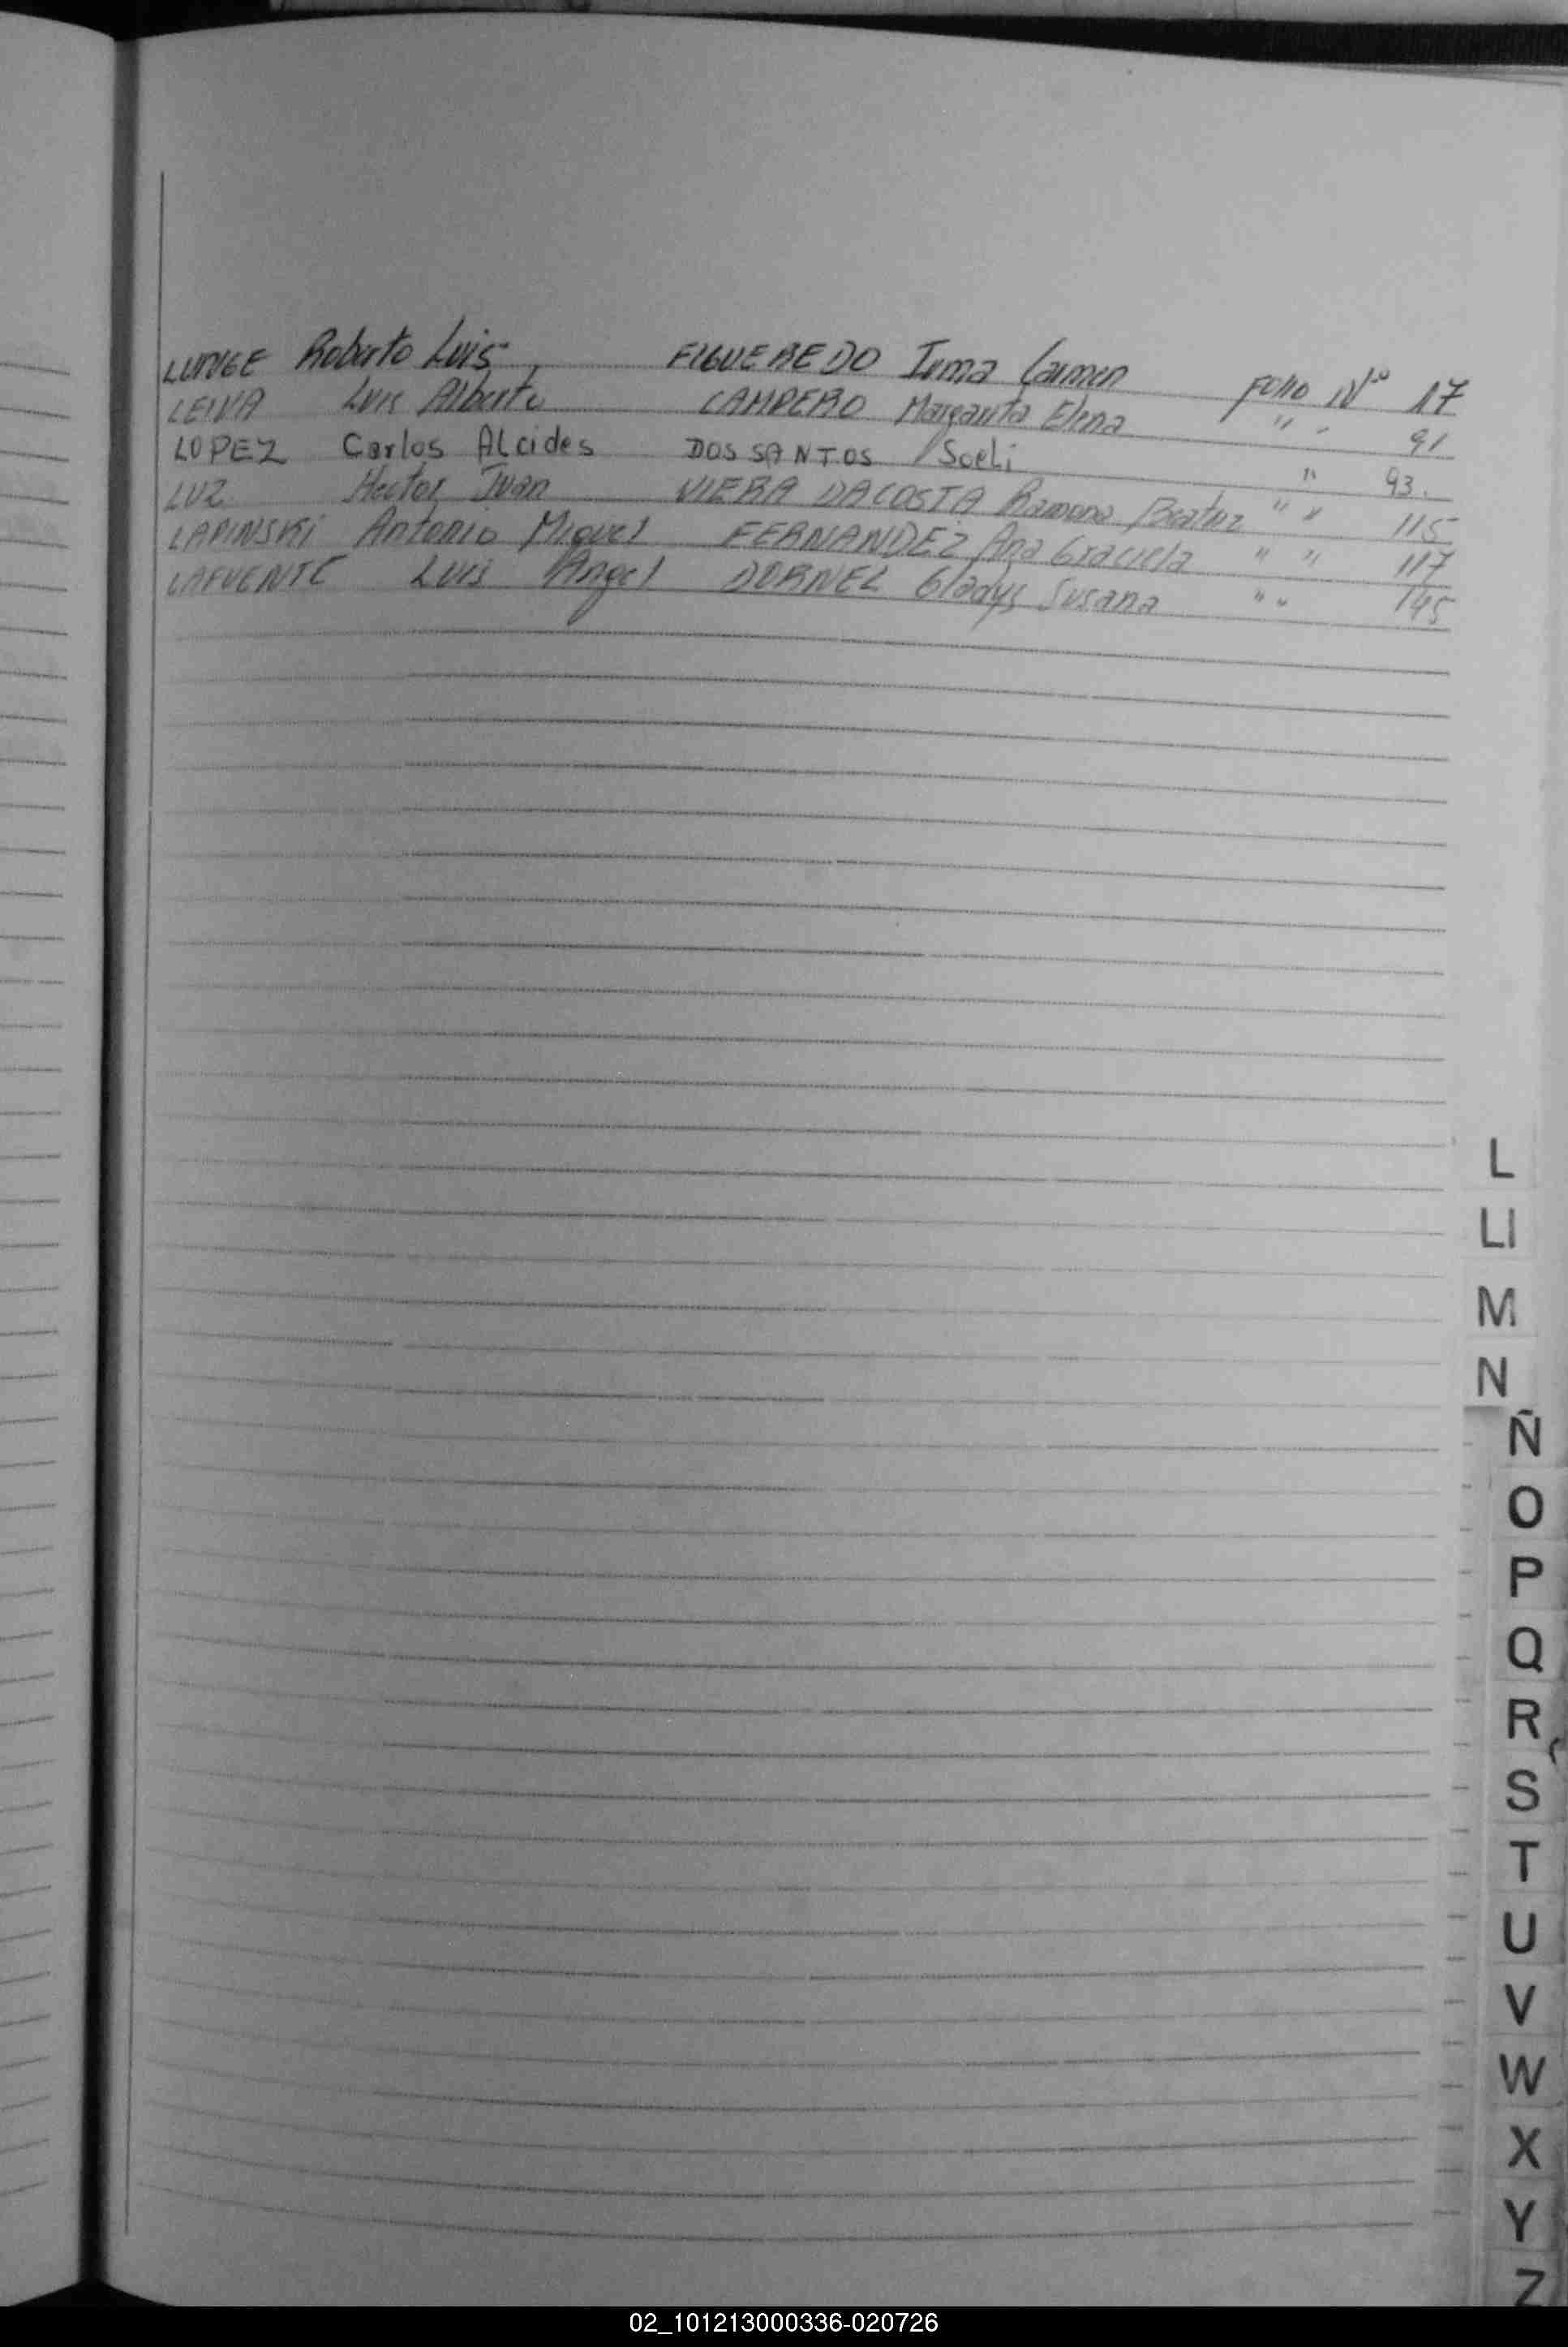 LUNGE Roberto Luis FIGUEREDO Irma Carmen Folio Nº 17
LEIVA Luis Alberto CAMPERO Margarita Elena " " 91
LOPEZ Carlos Alcides DOS SANTOS Soeli " 93.
LUZ Hector Juan VIERA DACOSTA Ramona Beatriz " " 115
LAPINSKI Antonio Miguel FERNANDEZ Ana Graciela " " 117
LAFUENTE Luis Angel DORNEL Gladys Susana " " 145
L
Ll
M
N
Ñ
O
P
Q
R
S
T
U
V
W
X
Y
Z
02_101213000336-020726